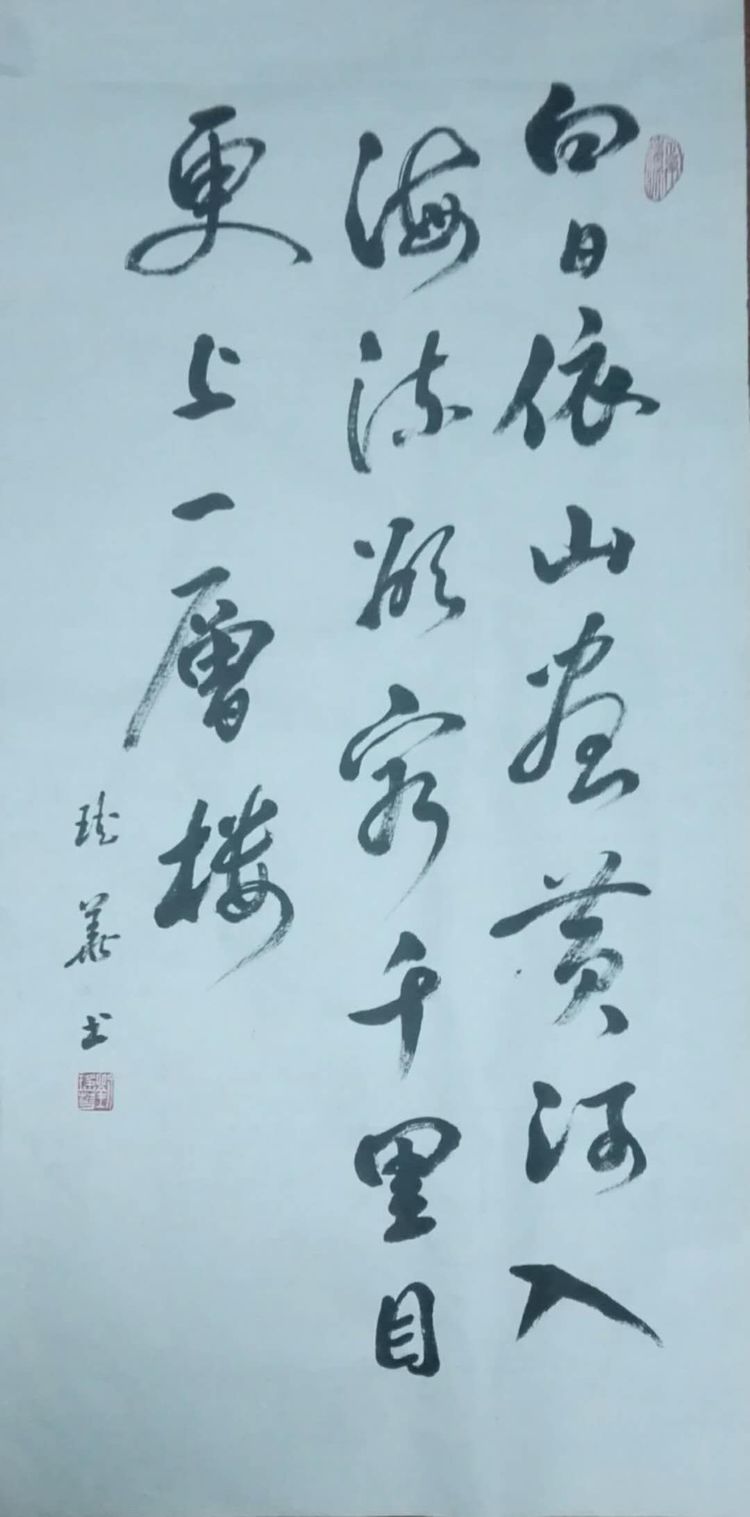 白日依山尽黄河入
海流欲穷千里目
更上一層楼